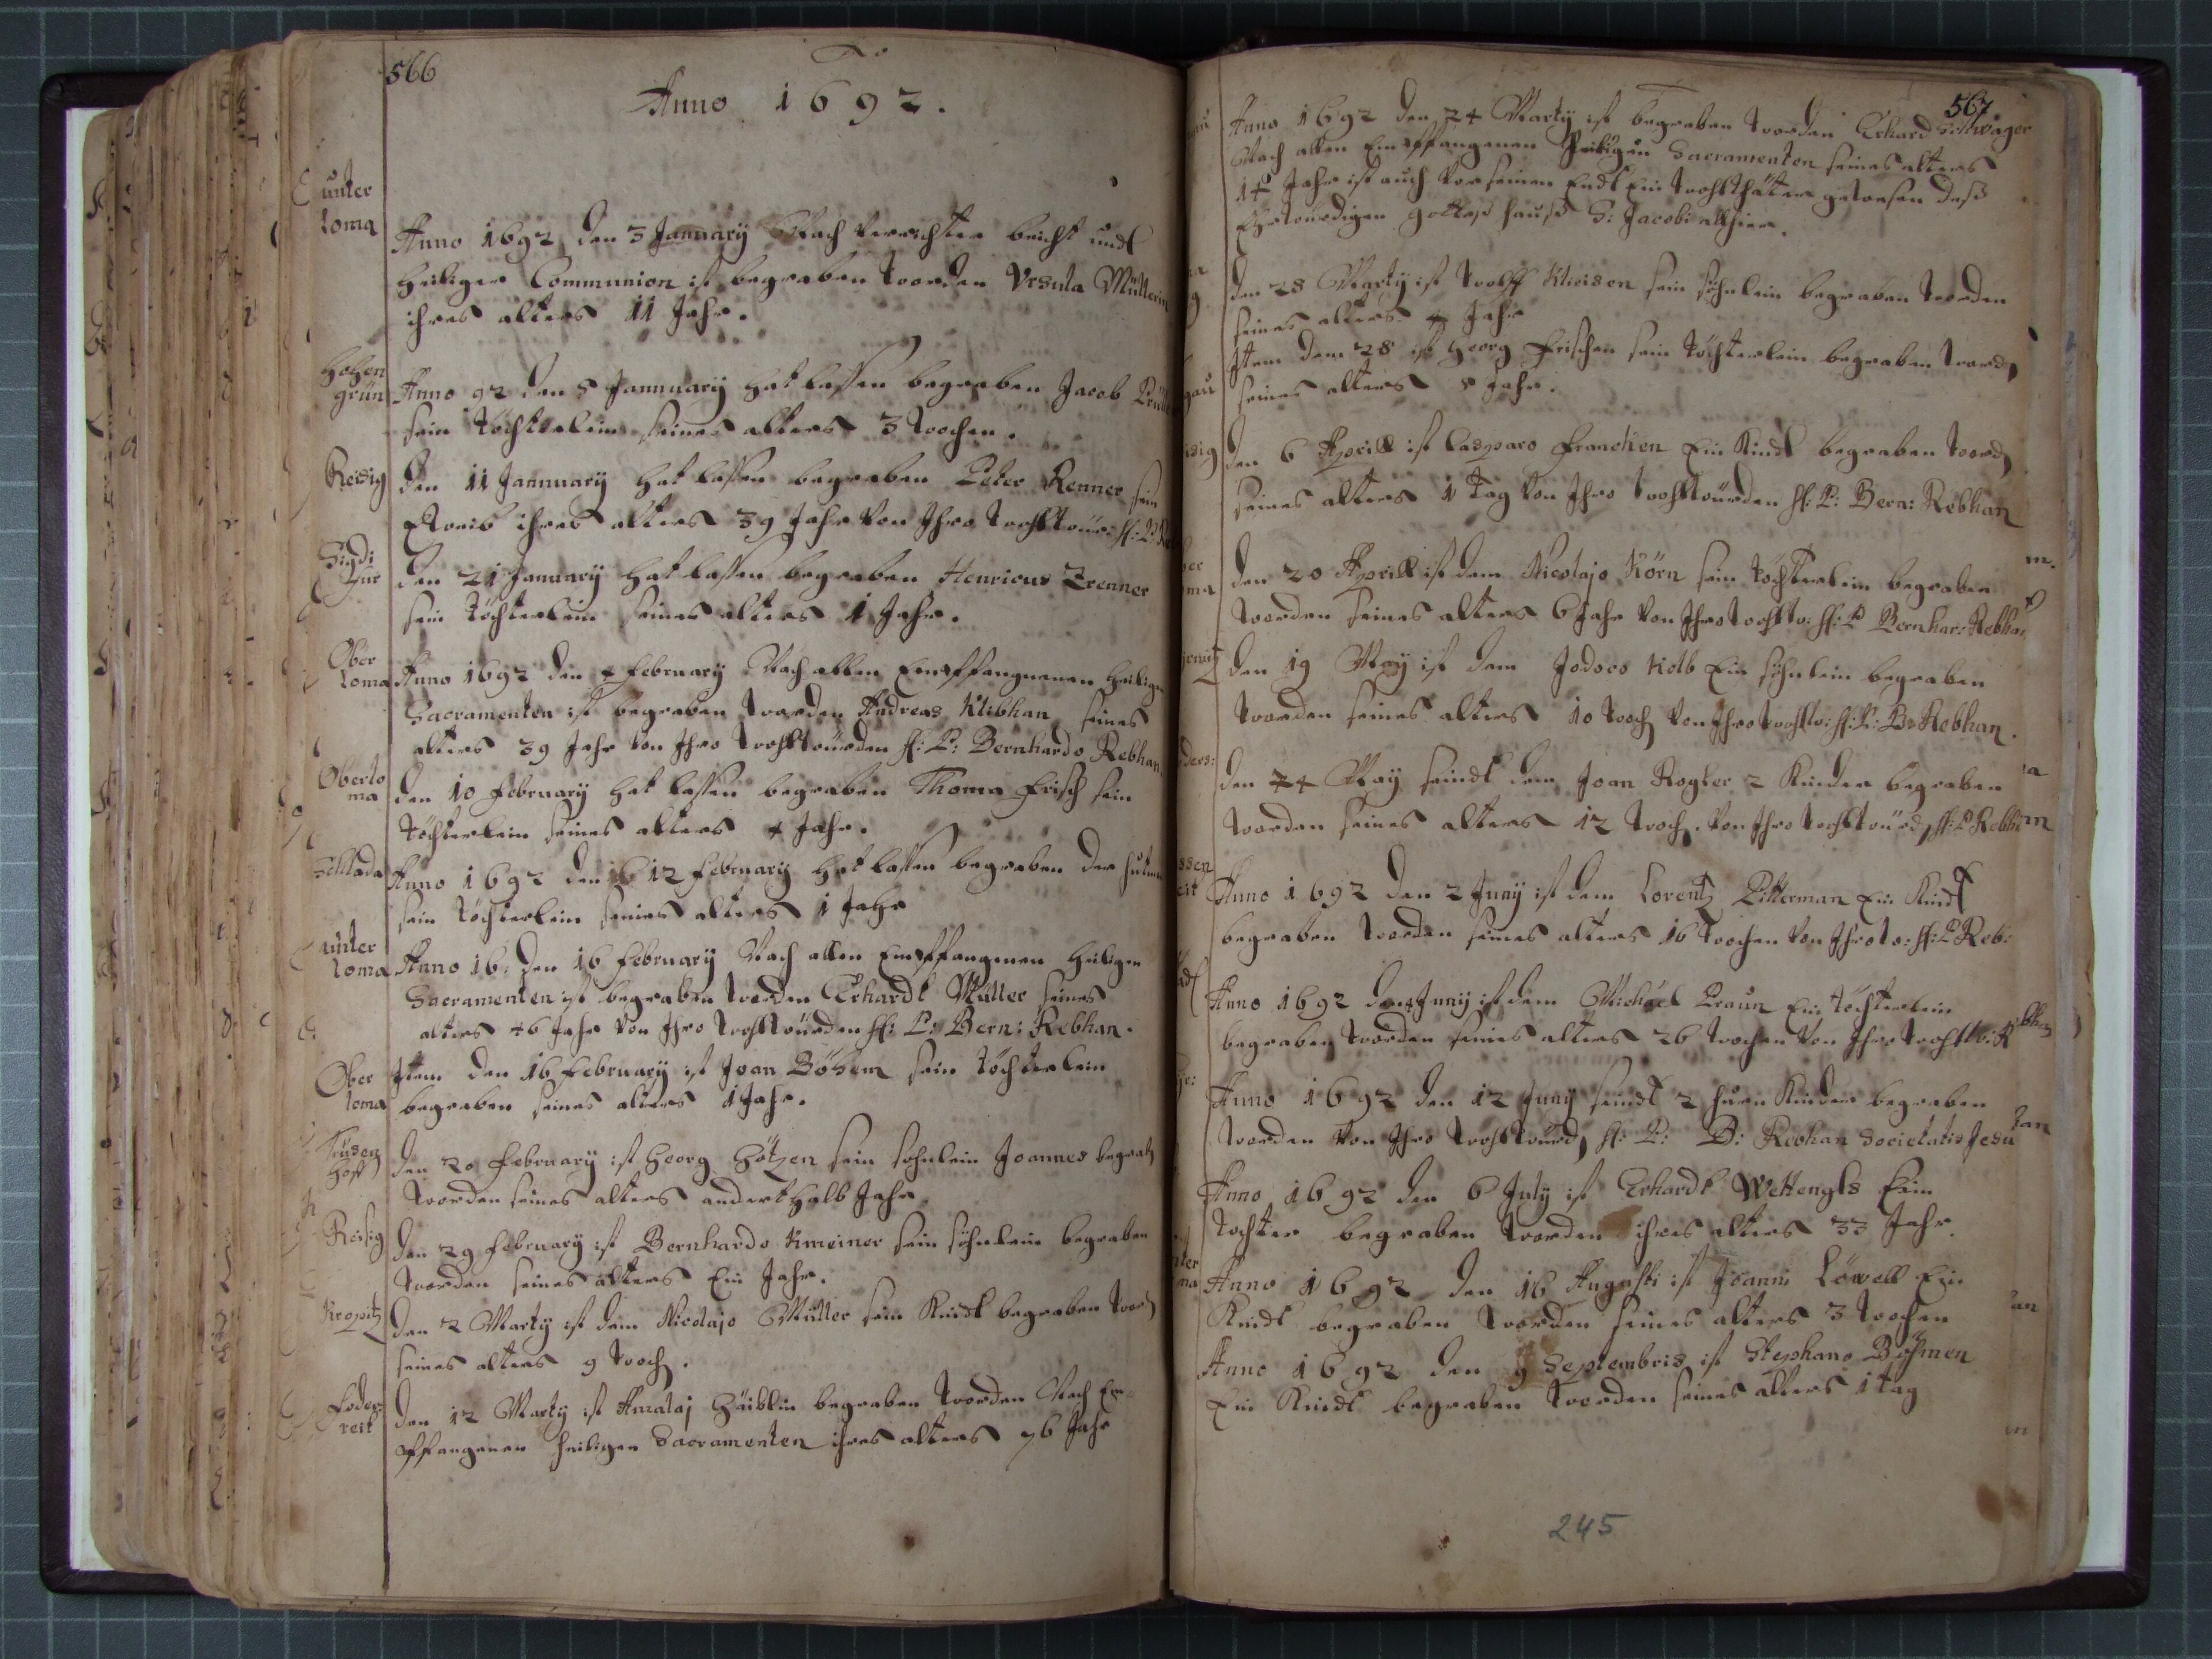 566
Anno 1692.
unter
Loma
Anno 1692 den 3 January Nach verrichter beicht undt
heiliger Communion ist begraben worden Vrsula Müllerin
ihres alters 11 Jahr.
Hohen
grün
Anno 92 den 5 Jannuary hat lassen begraben Jacob
sein töchterlein seines alters 3 wochen.
Reisig
den 11 Jannuary hat lassen begraben Peter Renner sein
Eheweib ihres alters 39 Jahr von Ihro wohlwür: H: P:
den 21 January hat lassen begraben Henricus Trenner
sein töchterlein seines alters 1 Jahr.
Ober
Loma
Anno 1692 den February Nach allen Empffangnenen heiligen
Sacramenten ist begraben worden Andreas Klibhan seines
alters 39 Jahr von Ihro wohlwürden H: P: Bernhardo Rebhan.
Oberlo
ma
den 10 February hat lassen begraben Thoma Frisch sein
töchterlein seines alters 4 Jahr.
Schlada
Anno 1692 den 12 February hat lassen begraben der
sein töchterlein seines alters 1 Jahr
unter
Loma
Anno 16: den 16 February Nach allen Empffangenen heiligen
Sacramenten ist begraben worden Erhardt Müller seines
alters 46 Jahr von Ihro wohlwürden H: P: Bern: Rebhan.
Ober
loma
Item den 16 February ist Joan Böhem sein töchterlein
begraben seines alters 1 Jahr.
den 20 February ist Georg Götzen sein sohnlein Joannes begrab
worden seines alters anderthalb Jahr.
Reisig
den 29 February ist Bernhardo Kmeiner sein söhnlein begraben
worden seines alters Ein Jahr.
Kropitz
den 2 Marty ist dem Nicolajo Müller sein Kindt begraben word
seines alters 9 woch.
Foder
reit
den 12 Marty ist begraben worden Nach Em-
pffangenen heiligen Sacramenten ihres alters 76 Jahr
567
Anno 1692 den 24 Marty ist begraben worden Erhard Schwager
Nach allen Empffangenen Heiligen Sacramenten seines alters
Jahr ist auch vor seinen Endt Ein wohlthätter gewesen deß
Ehrwürdigen gottes hauß S: Jacobi allhier.
den 28 Marty ist wolff Kleisen sein söhnlein begraben worden
seines alters Jahr
Item dem 28 ist Georg Frischen sein töchterlein begraben word
seines alters 8 Jahr.
den 6 Aprill ist Casparo Francken Ein Kindt begraben word
seines alters 1 tag von Ihro wohlwürden H: P: Bern: Rebhan
den 20 Aprill ist dem Nicolajo Körn sein töchterlein begraben
worden seines alters 6 Jahr von Ihro wohlw: H: P Bernhar: Rebhan
den 19 May ist dem Jodoco Kolb Ein söhnlein begraben
worden seines alters 10 woch von Ihro wohlw: H: P: Be Rebhan.
den 24 May seindt dem Joan Rogler 2 Kinder begraben
worden seines alters 12 woch. von Ihro wohlwürd H: P Rebhan
Anno 1692 den 2 Juny ist dem Lorentz Pitterman Ein Kindt
begraben worden seines alters 16 wochen von Ihro w: H: P Reb:
Anno 1692 den Juny ist dem Michäel Praun Ein töchterlein
begraben worden seines alters 26 wochen von Ihro wohlw: Rebhan
Anno 1692 den 12 Juny seindt 2 huren Kinder begraben
worden von Ihro wohlwürd H: P: B: Rebhan Societatis Jesu
Anno 1692 den 6 July ist Erhardt Wettengls Ein
tochter begraben worden ihres alters 33 Jahr.
Anno 1692 den 16 Augusti ist Joanni Löwell Ein
Kindt begraben worden seines alters 3 wochen
Anno 1692 den 9 Septembris ist Stephano Böhmen
Ein Kindt begraben worden seines alters 1 tag
245